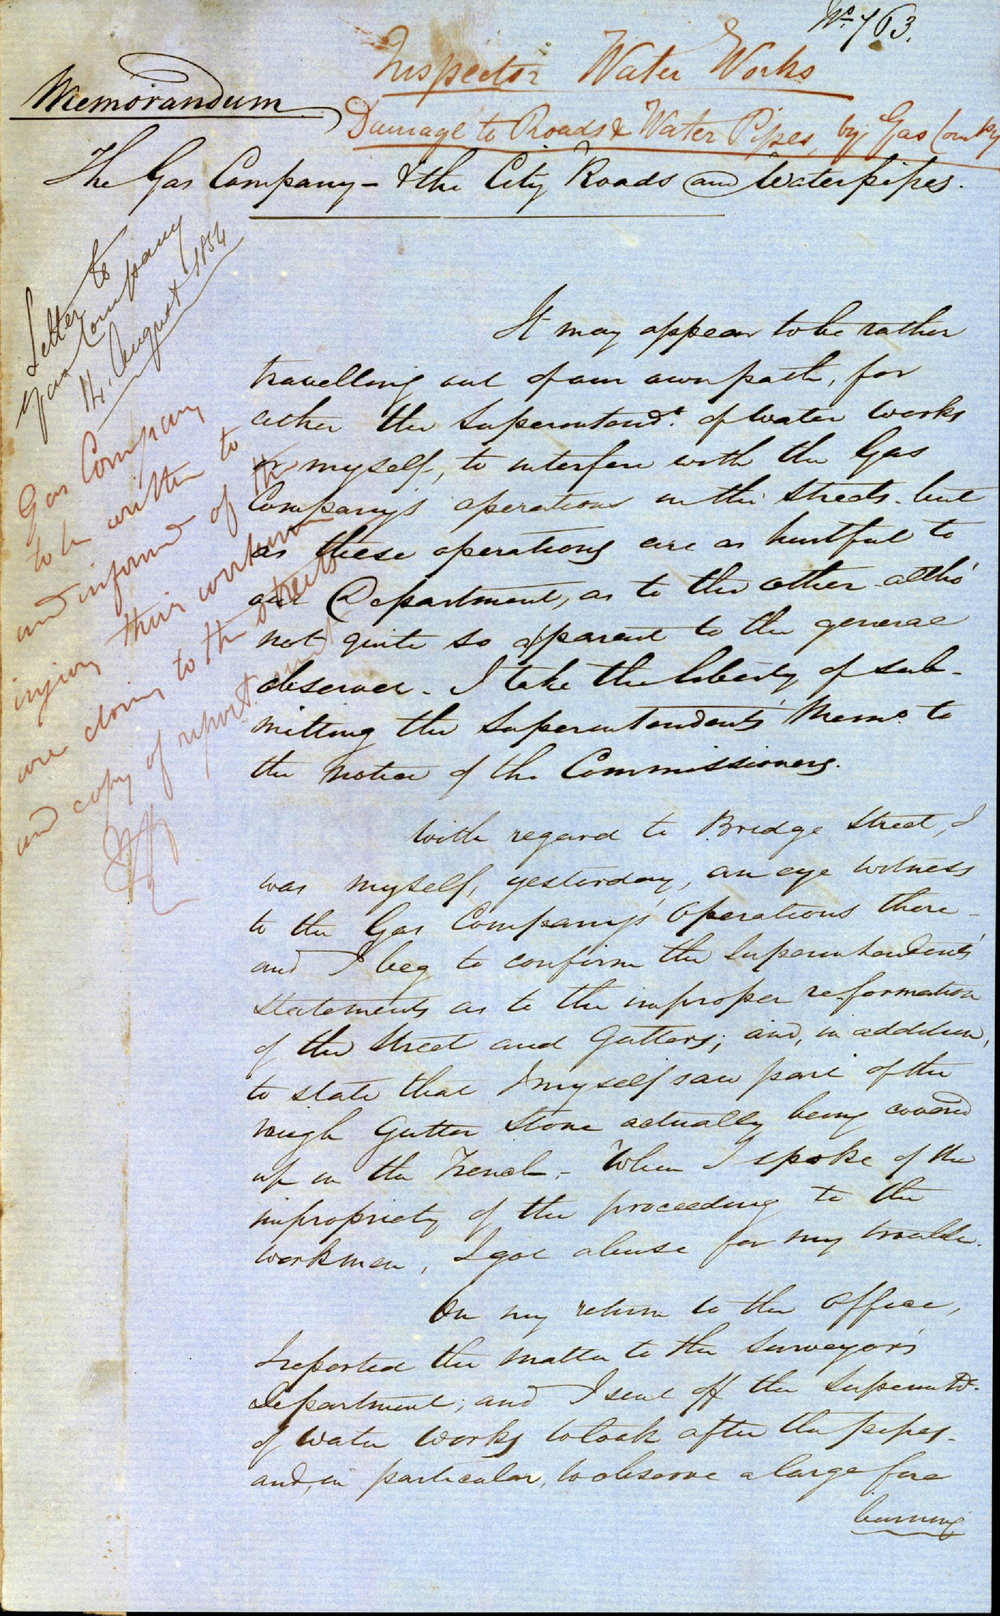 No. 763.
Inspector Water Works
Damage to Roads & Water Pipes, by Gas Compy
Memorandum
The Gas Company – & the City Roads and Waterpipes.
Letter to
Gas Company
14 August 1854
Gas Company
to be written to
and informed of the
injury their workmen
are doing to the streets
and copy of report
It may appear to be rather
travelling out of our own path, for
either the Superintendt. of Water Works
or myself, to interfere with the Gas
Company's operations in the Streets – but
as these operations are as hurtful to
our Department, as to the other – altho'
not quite so apparent to the general
observer – I take the liberty of sub-
mitting the Superintendent's Memo. to
the notice of the Commissioners.
With regard to Bridge Street, I
was myself, yesterday, an eye witness
to the Gas Company's operations there –
and I beg to confirm the Superintendent's
statements as to the improper re-formation
of the Street and Gutters; and, in addition,
to state that I myself saw part of the
rough Gutter Stone actually being covered
up in the Trench. – When I spoke of the
impropriety of the proceeding to the
workmen, I got abuse for my trouble.
On my return to the office,
I reported the matter to the Surveyor's
Department; and I sent off the Superintdt.
of Water Works to look after the pipes –
and, in particular, to observe a large fire
burning